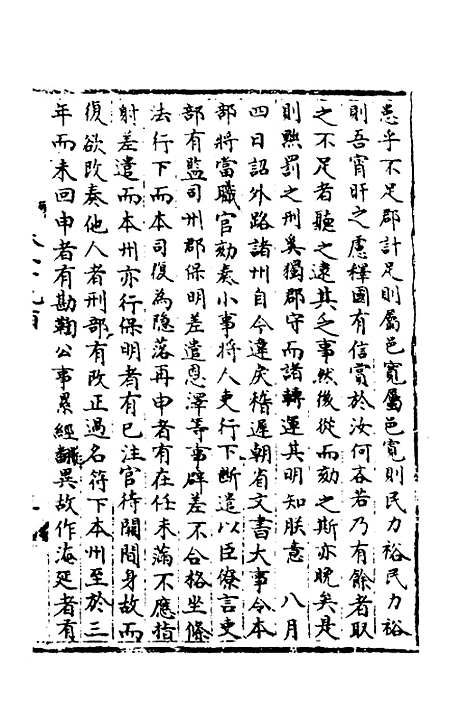 患乎不足郡計足則屬邑寬屬邑寬則民力裕民力裕
則吾宵旰之慮釋國有信賞於汝何吝若乃有餘者取
之不足者聽之逮其乏事然後從而劾之斯亦晚矣是
則黜罰之刑奚獨郡守而諸轉運其明知朕意 八月
四日詔外路諸州自今違戾稽遲朝省文書大事令本
部將當職官劾奏小事將人吏行下斷遣以臣僚言吏
部有監司州郡保明差遣恩澤等事辟差不合格坐條
法行下而本司復為隱落再申者有在任未滿不應指
射差遣而本州亦行保明者有已注官待闕間身故而
復欲改奏他人者刑部有改正過名符下本州至於三
年而未回申者有勘鞫公事累經翻異故作淹延者有